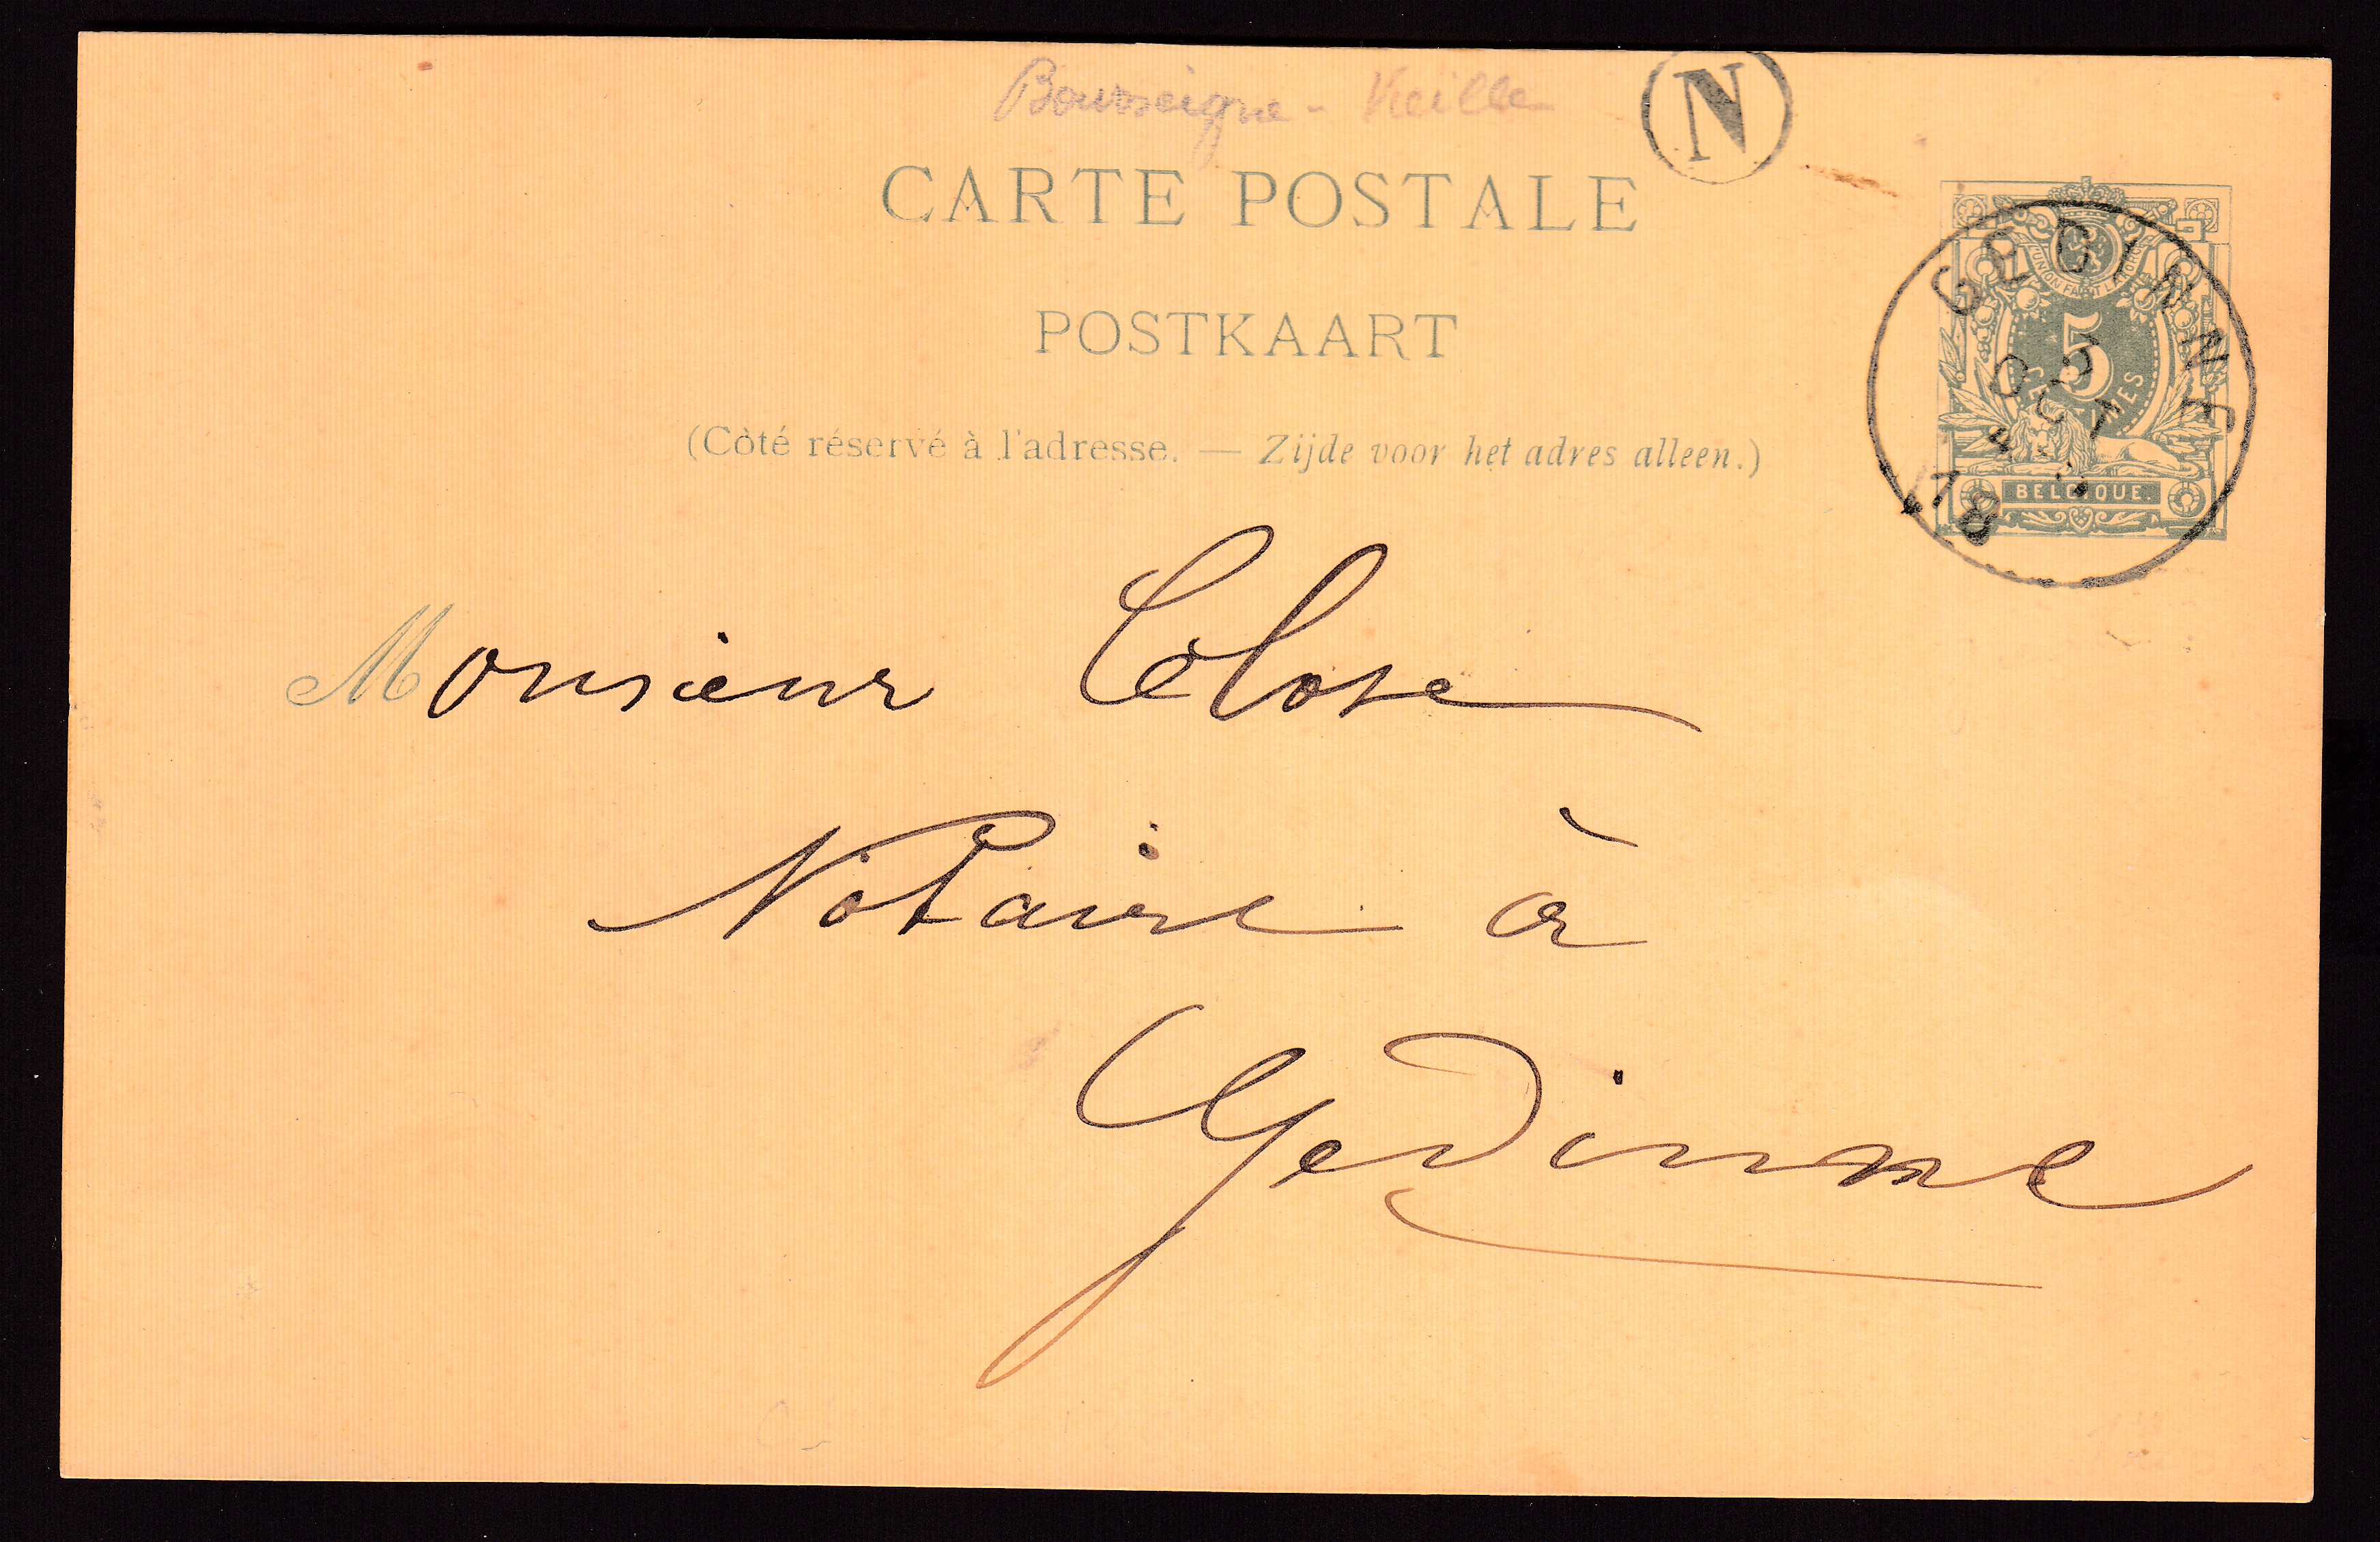 Bourseigne - Vieille
N
CARTE POSTALE
POSTKAART
(Côté réservé à l'adresse. — Zijde voor het adres alleen.)
L'UNION FAIT LA FORCE
5
CENTIMES
BELGIQUE.
GEDINNE
OCT
Monsieur Delose
Notaire à
Gedinne